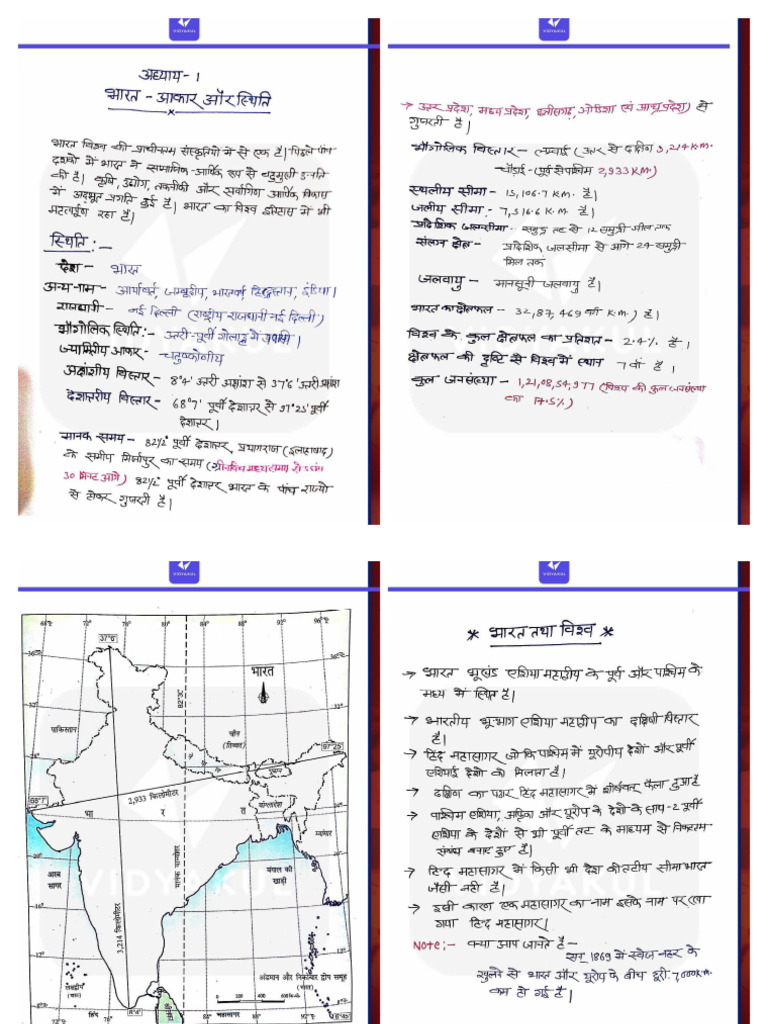 VIDYAKUL
अध्याय-1
भारत - आकार और स्थिति
भारत विश्व की प्राचीनतम संस्कृतियों में से एक है। पिछले पांच
दशकों में भारत ने सामाजिक-आर्थिक रूप से बहुमुखी उन्नति
की है। कृषि, उद्योग, तकनीकी और सर्वांगीण आर्थिक विकास
में अद्भुत प्रगति हुई है। भारत का विश्व इतिहास में भी
महत्वपूर्ण रहा है।
स्थिति :-
देश - भारत
अन्य-नाम - आर्यावर्त, जम्बूद्वीप, भारतवर्ष, हिन्दुस्तान, इंडिया।
राजधानी - नई दिल्ली (राष्ट्रीय राजधानी-नई दिल्ली)
भौगोलिक स्थिति :- उत्तरी-पूर्वी गोलार्द्ध में
ज्यामितीय आकार - चतुष्कोणीय
अक्षांशीय विस्तार - 8°4' उत्तरी अक्षांश से 37°6' उत्तरी अक्षांश
देशान्तरीय विस्तार - 68°7' पूर्वी देशान्तर से 97°25' पूर्वी
देशान्तर।
मानक समय - 82½° पूर्वी देशान्तर, प्रयागराज (इलाहाबाद)
के समीप मिर्जापुर का समय (ग्रीनविच मध्य समय से 5 घंटा
30 मिनट आगे) 82½° पूर्वी देशान्तर भारत के पांच राज्यो
से होकर गुजरती है।
VIDYAKUL
→ उत्तर प्रदेश, मध्य प्रदेश, छत्तीसगढ़, ओडिशा एवं आन्ध्र प्रदेश) से
गुजरती है।
भौगोलिक विस्तार - लम्बाई (उत्तर से दक्षिण 3,214 K.M.
चौड़ाई - (पूर्व से पश्चिम 2,933 K.M)
स्थलीय सीमा - 15,106.7 K.M. है।
जलीय सीमा :- 7,516.6 K.M. है।
प्रादेशिक जलसीमा - समुद्र तट से 12 समुद्री मील तक
संलग्न क्षेत्र - प्रादेशिक जलसीमा से आगे 24 समुद्री
मील तक
जलवायु - मानसूनी जलवायु है।
भारत का क्षेत्रफल - 32,87,469 वर्ग K.M.) है।
विश्व के कुल क्षेत्रफल का प्रतिशत - 2.4% है।
क्षेत्रफल की दृष्टि से विश्व में स्थान 7 वां है।
कुल जनसंख्या - 1,21,08,54,977 (विश्व की कुल जनसंख्या
का 17.5%)
VIDYAKUL
68°पू 72° 76° 80° 84° 88° 92° 96°पू
37°6'
36°
82°30'
भारत
32°
पाकिस्तान
चीन
(तिब्बत)
97°25'
भूटान
68°7'
2,933 किलोमीटर
भा र त
बांग्लादेश
म्यांमार
मानक याम्योत्तर
3,214 किलोमीटर
अरब
सागर
बंगाल की
खाड़ी
लक्षद्वीप
(भारत)
अंडमान और निकोबार द्वीप समूह
(भारत)
0 200 400 600
श्रीलंका
72°पू हिंद 76° 8°4' महासागर 84° 88° 92° 6°45'
VIDYAKUL
* भारत तथा विश्व *
→ भारत भूखंड एशिया महाद्वीप के पूर्व और पश्चिम के
मध्य में स्थित है।
→ भारतीय भू-भाग एशिया महाद्वीप का दक्षिणी विस्तार
है।
→ हिन्द महासागर जो कि पश्चिम में यूरोपीय देशों और पूर्वी
एशियाई देशों को मिलाता है।
→ दक्षिण का पठार हिन्द महासागर में शीर्षवत् फैला हुआ है
→ पश्चिम एशिया, अफ्रिका और यूरोप के देशो के साथ-2 पूर्वी
एशिया के देशों से भी पूर्वी तट के माध्यम से निकटतम
संबंध बनाए हुए है।
→ हिन्द महासागर में किसी भी देश की तटीय सीमा भारत
जैसी नहीं है।
→ इसी कारण एक महासागर का नाम इसके नाम पर रखा
गया हिन्द महासागर।
Note:- क्या आप जानते है -
सन् 1869 में स्वेज नहर के
खुलने से भारत और यूरोप के बीच दूरी 7000 K.m.
कम हो गई है।
VIDYAKUL